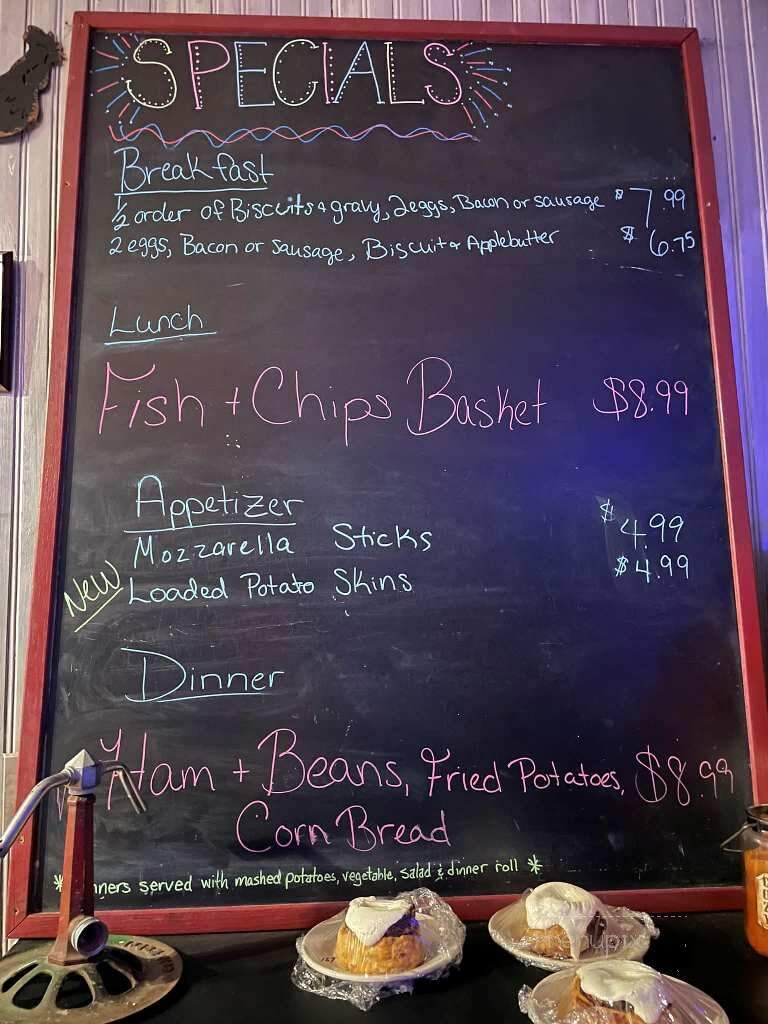 SPECIALS
Breakfast
1/2 order of Biscuits + gravy, 2 eggs, Bacon or sausage $7.99
2 eggs, Bacon or sausage, Biscuit + Applebutter $6.75
Lunch
Fish + Chips Basket $8.99
Appetizer
Mozzarella Sticks $4.99
NEW Loaded Potato Skins $4.99
Dinner
Ham + Beans, Fried Potatoes, $8.99
Corn Bread
* nners served with mashed potatoes, vegetable, salad & dinner roll *
menupix